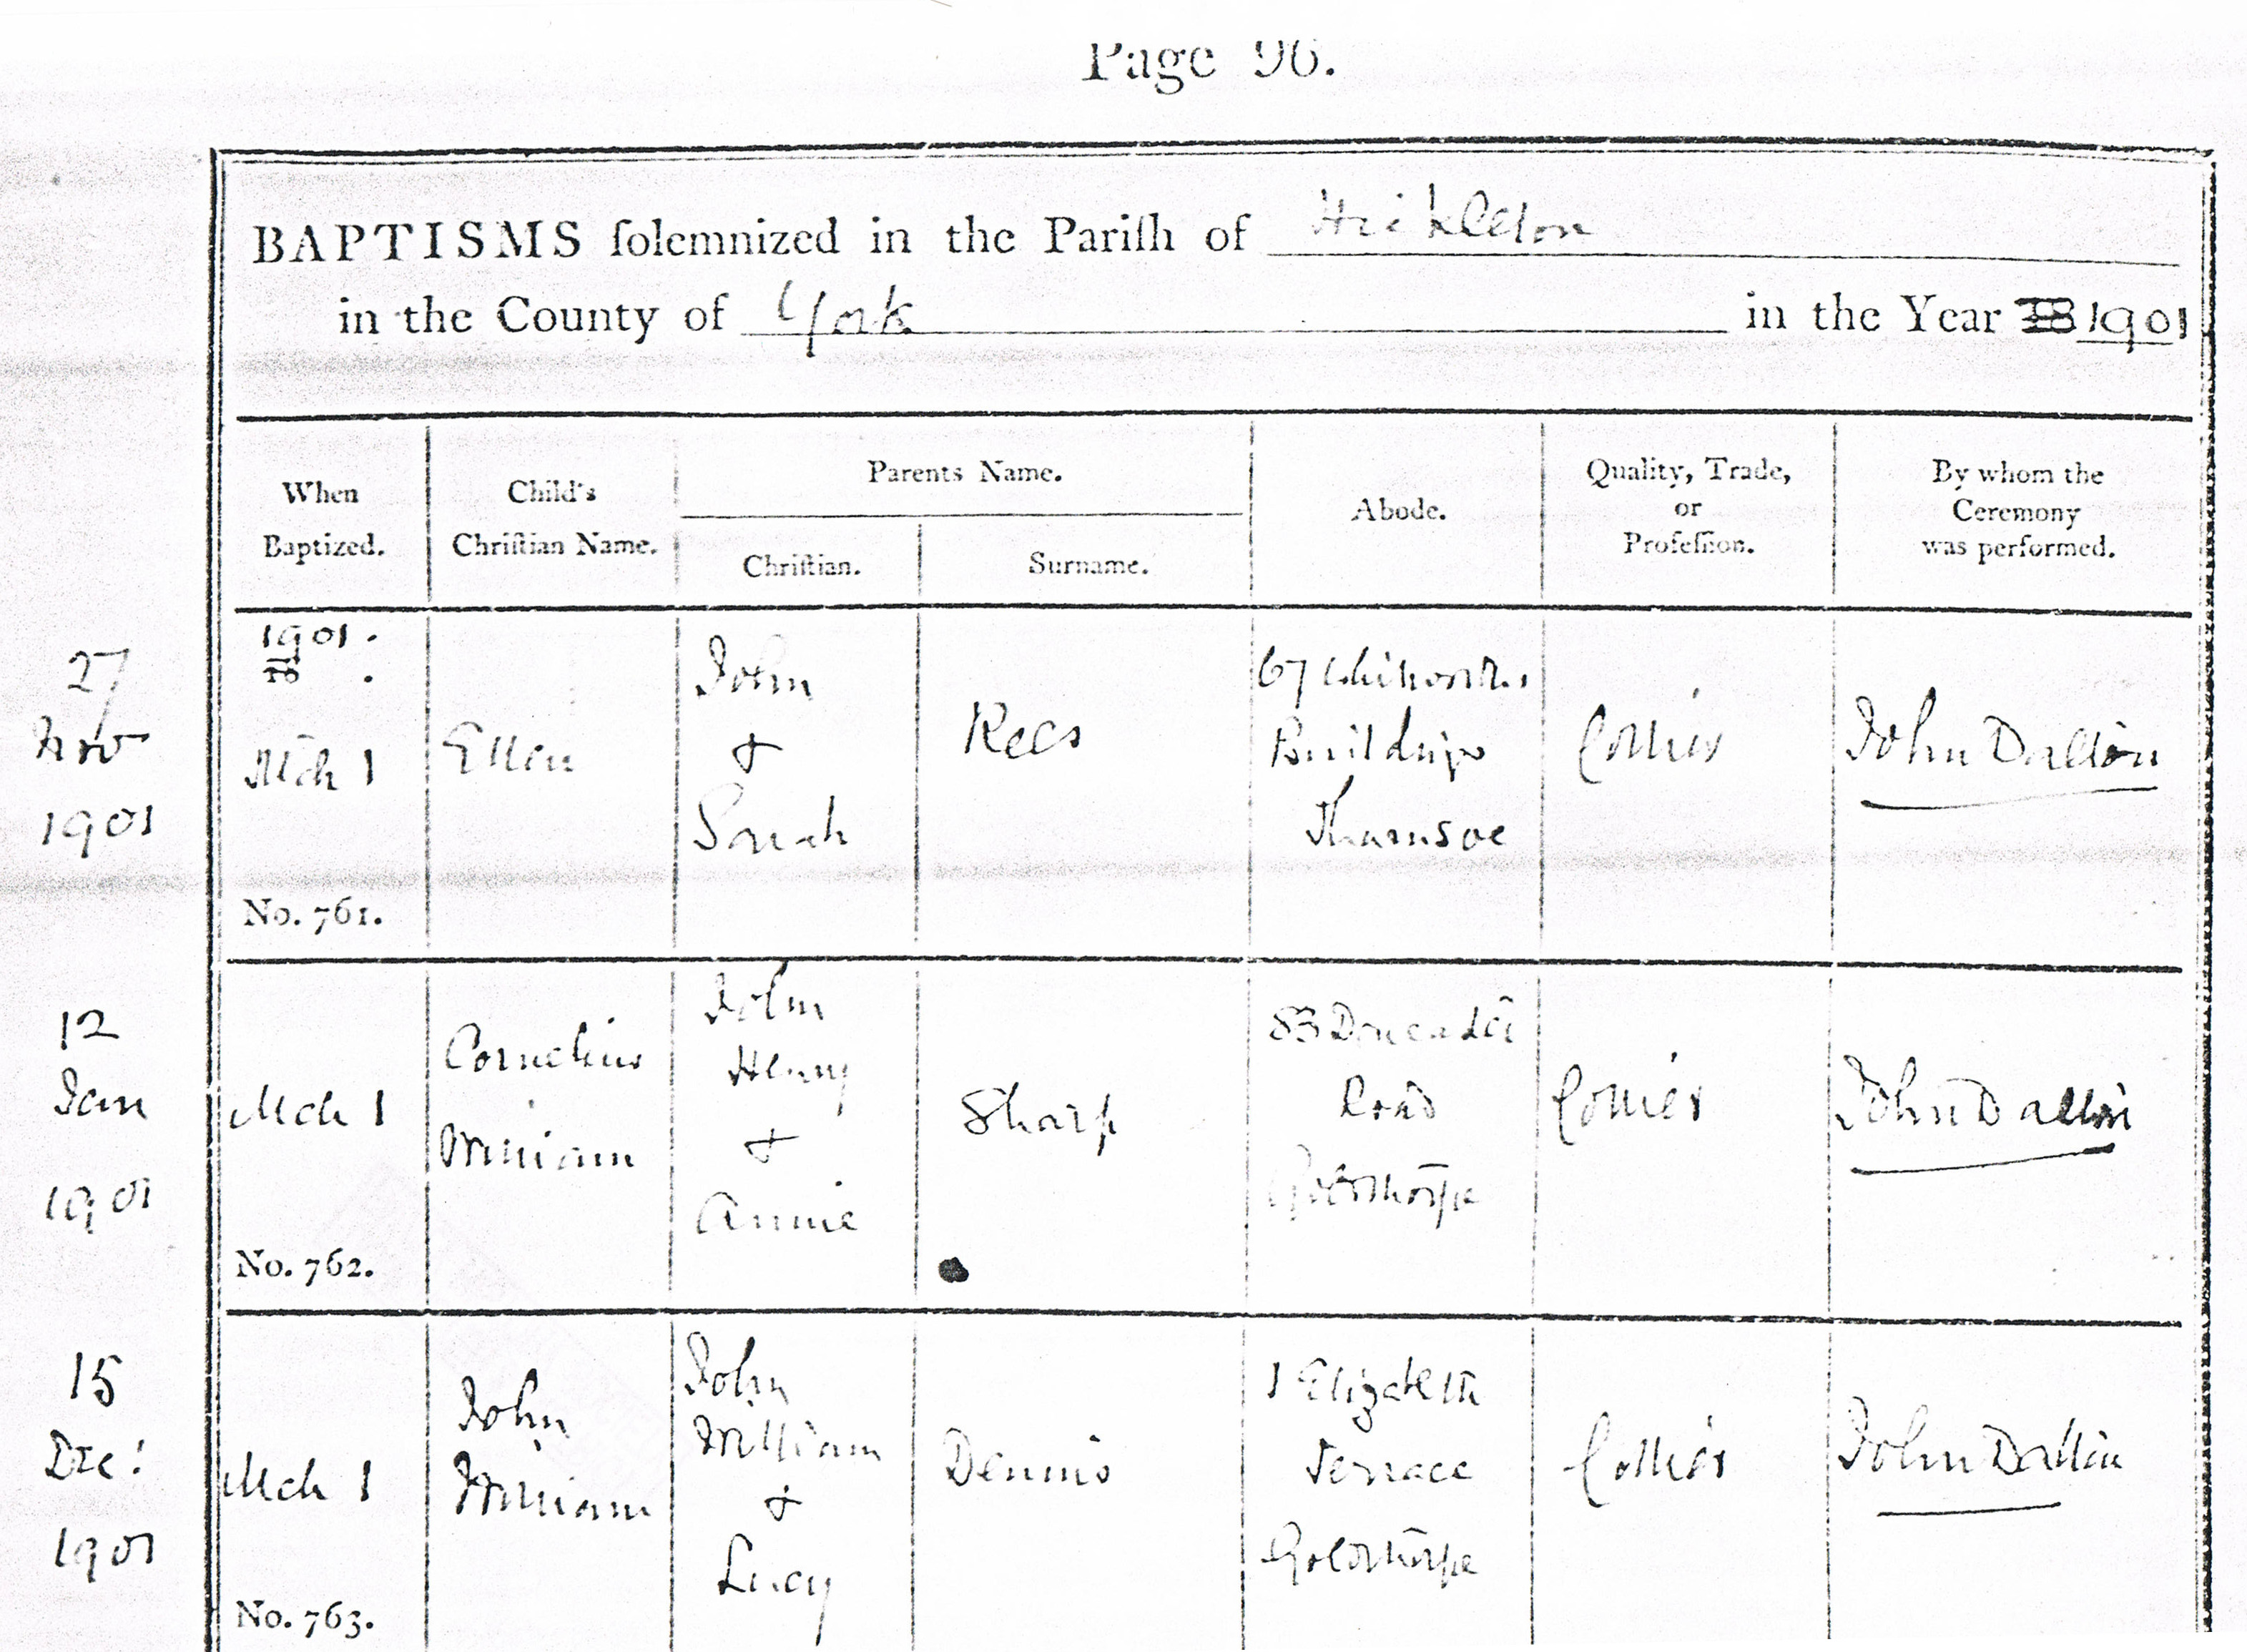 Page 96.
BAPTISMS solemnized in the Parish of Hickleton
in the County of York in the Year 18 1901
When
Baptized.
Child's
Christian Name.
Parents Name.
Christian.
Surname.
Abode.
Quality, Trade,
or
Profession.
By whom the
Ceremony
was performed.
27
Nov
1901
1901.
18 .
Mch 1
No. 761.
Ellen
John
&
Sarah
Rees
67 Whitworths
Buildings
Thurnscoe
Collier
John Dalton
12
Jan
1901
Mch 1
No. 762.
Cornelius
William
John
Henry
&
Annie
Sharp
83 Doncaster
Road
Goldthorpe
Collier
John Dalton
15
Dec:
1901
Mch 1
No. 763.
John
William
John
William
&
Lucy
Dennis
1 Elizabeth
Terrace
Goldthorpe
Collier
John Dalton